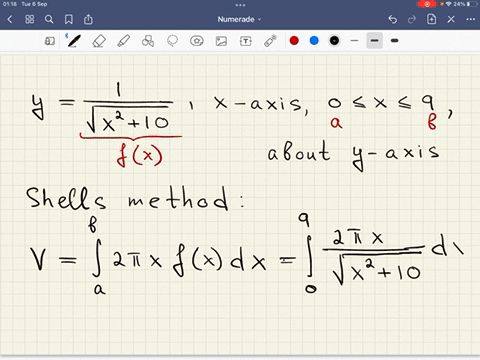 01:18 Tue 6 Sep
24%
Numerade
y = 1/√(x²+10), x-axis, 0 ≤ x ≤ 9,
f(x) a b
about y-axis
Shells method:
V = ∫ₐᵇ 2πx f(x) dx = ∫₀⁹ 2πx/√(x²+10) dx